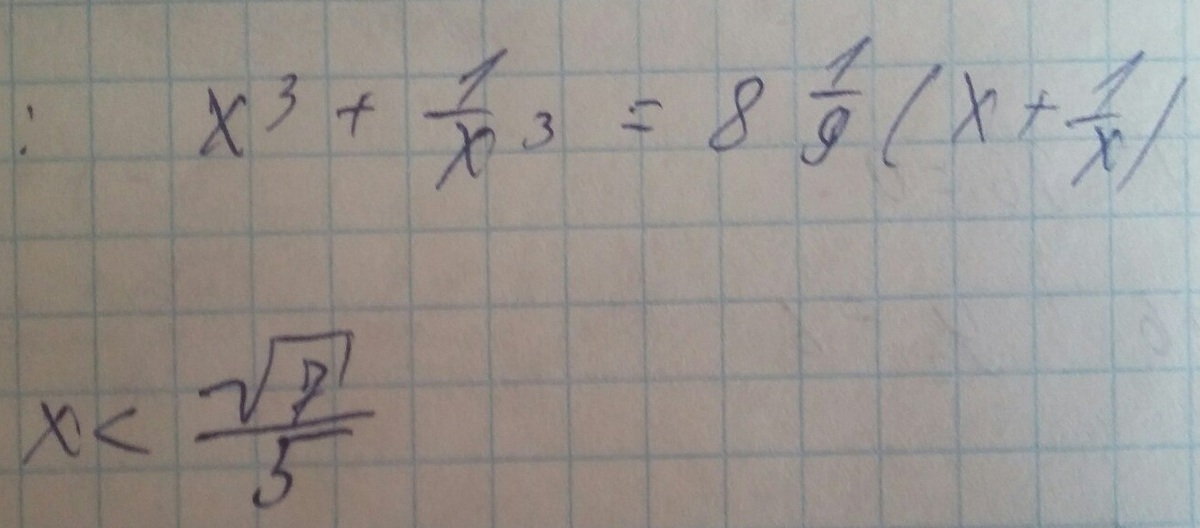 : x³ + 1/x³ = 8 1/9 (x + 1/x)
x < √7/5